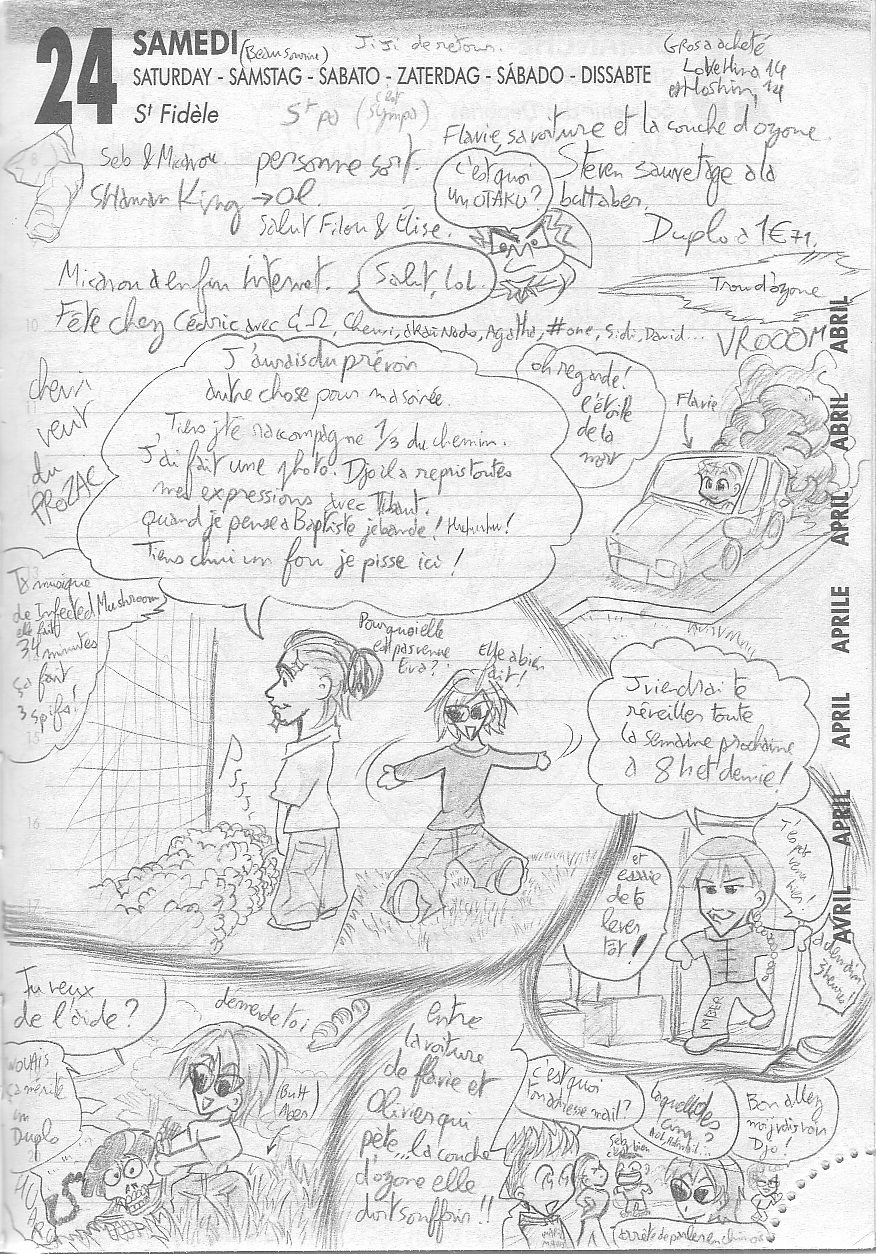 24 SAMEDI (Beau sourire) Jiji de retour.
Gros a acheté
Love Hina 14
et Hoshin 14
SATURDAY - SAMSTAG - SABATO - ZATERDAG - SÁBADO - DISSABTE
St Fidèle
St po (c'est sympa)
Flavie, sa voiture et la couche d'ozone.
Seb & Micnou. personne sort.
c'est quoi
un OTAKU?
Steven sauvetage a la
buttaber.
Shaman King → Ol.
Salut Filou & Élise.
Duplo à 1€71.
a enfin internet.
Salut, LoL.
Trou d'ozone
Fête chez Cédric avec Chewi, Agathe, #one, Sidi, David...
VROOOM
chewi
veut
du
PROZAC
J'aurais du prévoir
autre chose pour ma soirée.
Tiens j'te raccompagne 1/3 du chemin.
J'ai fait une photo. Djo il a repris toutes
mes expressions avec Tibaut.
quand je pense a Baptiste je bande! Huhuhu!
Tiens chui un fou je pisse ici!
oh regarde!
l'étoile
de la
mort
Flavie
musique
de Infected Mushroom
elle fait
34 minutes
ça fait
3 spifs!
Pourquoi elle
est pas venue
Eva?
Elle a bien
dit!
Pssss
J'viendrai te
réveiller toute
la semaine prochaine
à 8h et demie!
T'es pas
venu
hier!
et
essaie
de te
lever
tôt!
a demain
3 heures!
Tu veux
de l'aide?
demerde toi
(Butt
Aber)
OUAIS
ça mérite
un
Duplo
Entre
la voiture
de flavie et
Olivier qui
pète... la couche
d'ozone elle
doit souffrir!!
c'est quoi
ton adresse mail?
laquelle des
cinq?
Bon allez
moi j'vais voir
Djo!
Seb
c'est bien
arrête de parler en chinois
ABRIL
ABRIL
APRIL
APRILE
APRIL
APRIL
AVRIL